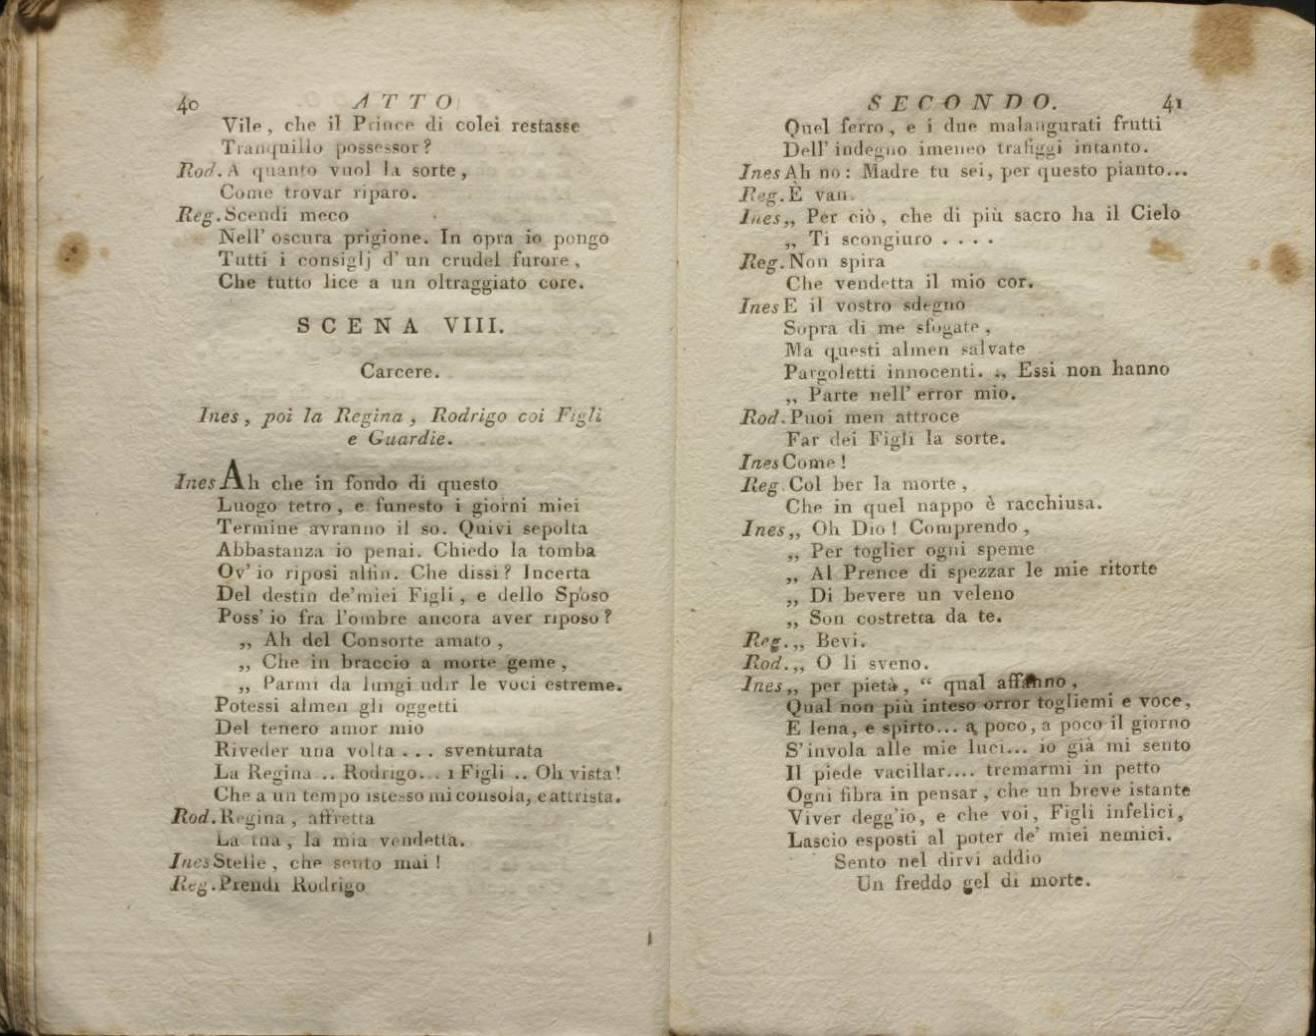 40 ATTO
Vile, che il Prince di colei restasse
Tranquillo possessor?
Rod. A quanto vuol la sorte,
Come trovar riparo.
Reg. Scendi meco
Nell' oscura prigione. In opra io pongo
Tutti i consiglj d' un crudel furore,
Che tutto lice a un oltraggiato core.
SCENA VIII.
Carcere.
Ines, poi la Regina, Rodrigo coi Figli
e Guardie.
Ines Ah che in fondo di questo
Luogo tetro, e funesto i giorni miei
Termine avranno il so. Quivi sepolta
Abbastanza io penai. Chiedo la tomba
Ov' io riposi alfin. Che dissi? Incerta
Del destin de' miei Figli, e dello Sposo
Poss' io fra l'ombre ancora aver riposo?
„ Ah del Consorte amato,
„ Che in braccio a morte geme,
„ Parmi da lungi udir le voci estreme.
Potessi almen gli oggetti
Del tenero amor mio
Riveder una volta... sventurata
La Regina .. Rodrigo... i Figli .. Oh vista!
Che a un tempo istesso mi consola, e attrista.
Rod. Regina, affretta
La tua, la mia vendetta.
Ines Stelle, che sento mai!
Reg. Prendi Rodrigo
SECONDO. 41
Quel ferro, e i due malaugurati frutti
Dell' indegno imeneo trafiggi intanto.
Ines Ah no: Madre tu sei, per questo pianto...
Reg. È van.
Ines „ Per ciò, che di più sacro ha il Cielo
„ Ti scongiuro....
Reg. Non spira
Che vendetta il mio cor.
Ines E il vostro sdegno
Sopra di me sfogate,
Ma questi almen salvate
Pargoletti innocenti. „ Essi non hanno
„ Parte nell' error mio.
Rod. Puoi men attroce
Far dei Figli la sorte.
Ines Come!
Reg. Col ber la morte,
Che in quel nappo è racchiusa.
Ines „ Oh Dio! Comprendo,
„ Per toglier ogni speme
„ Al Prence di spezzar le mie ritorte
„ Di bevere un veleno
„ Son costretta da te.
Reg. „ Bevi.
Rod. „ O li sveno.
Ines „ per pietà, “ qual affanno,
Qual non più inteso orror togliemi e voce,
E lena, e spirto... a poco, a poco il giorno
S' invola alle mie luci... io già mi sento
Il piede vacillar.... tremarmi in petto
Ogni fibra in pensar, che un breve istante
Viver degg' io, e che voi, Figli infelici,
Lascio esposti al poter de' miei nemici.
Sento nel dirvi addio
Un freddo gel di morte.